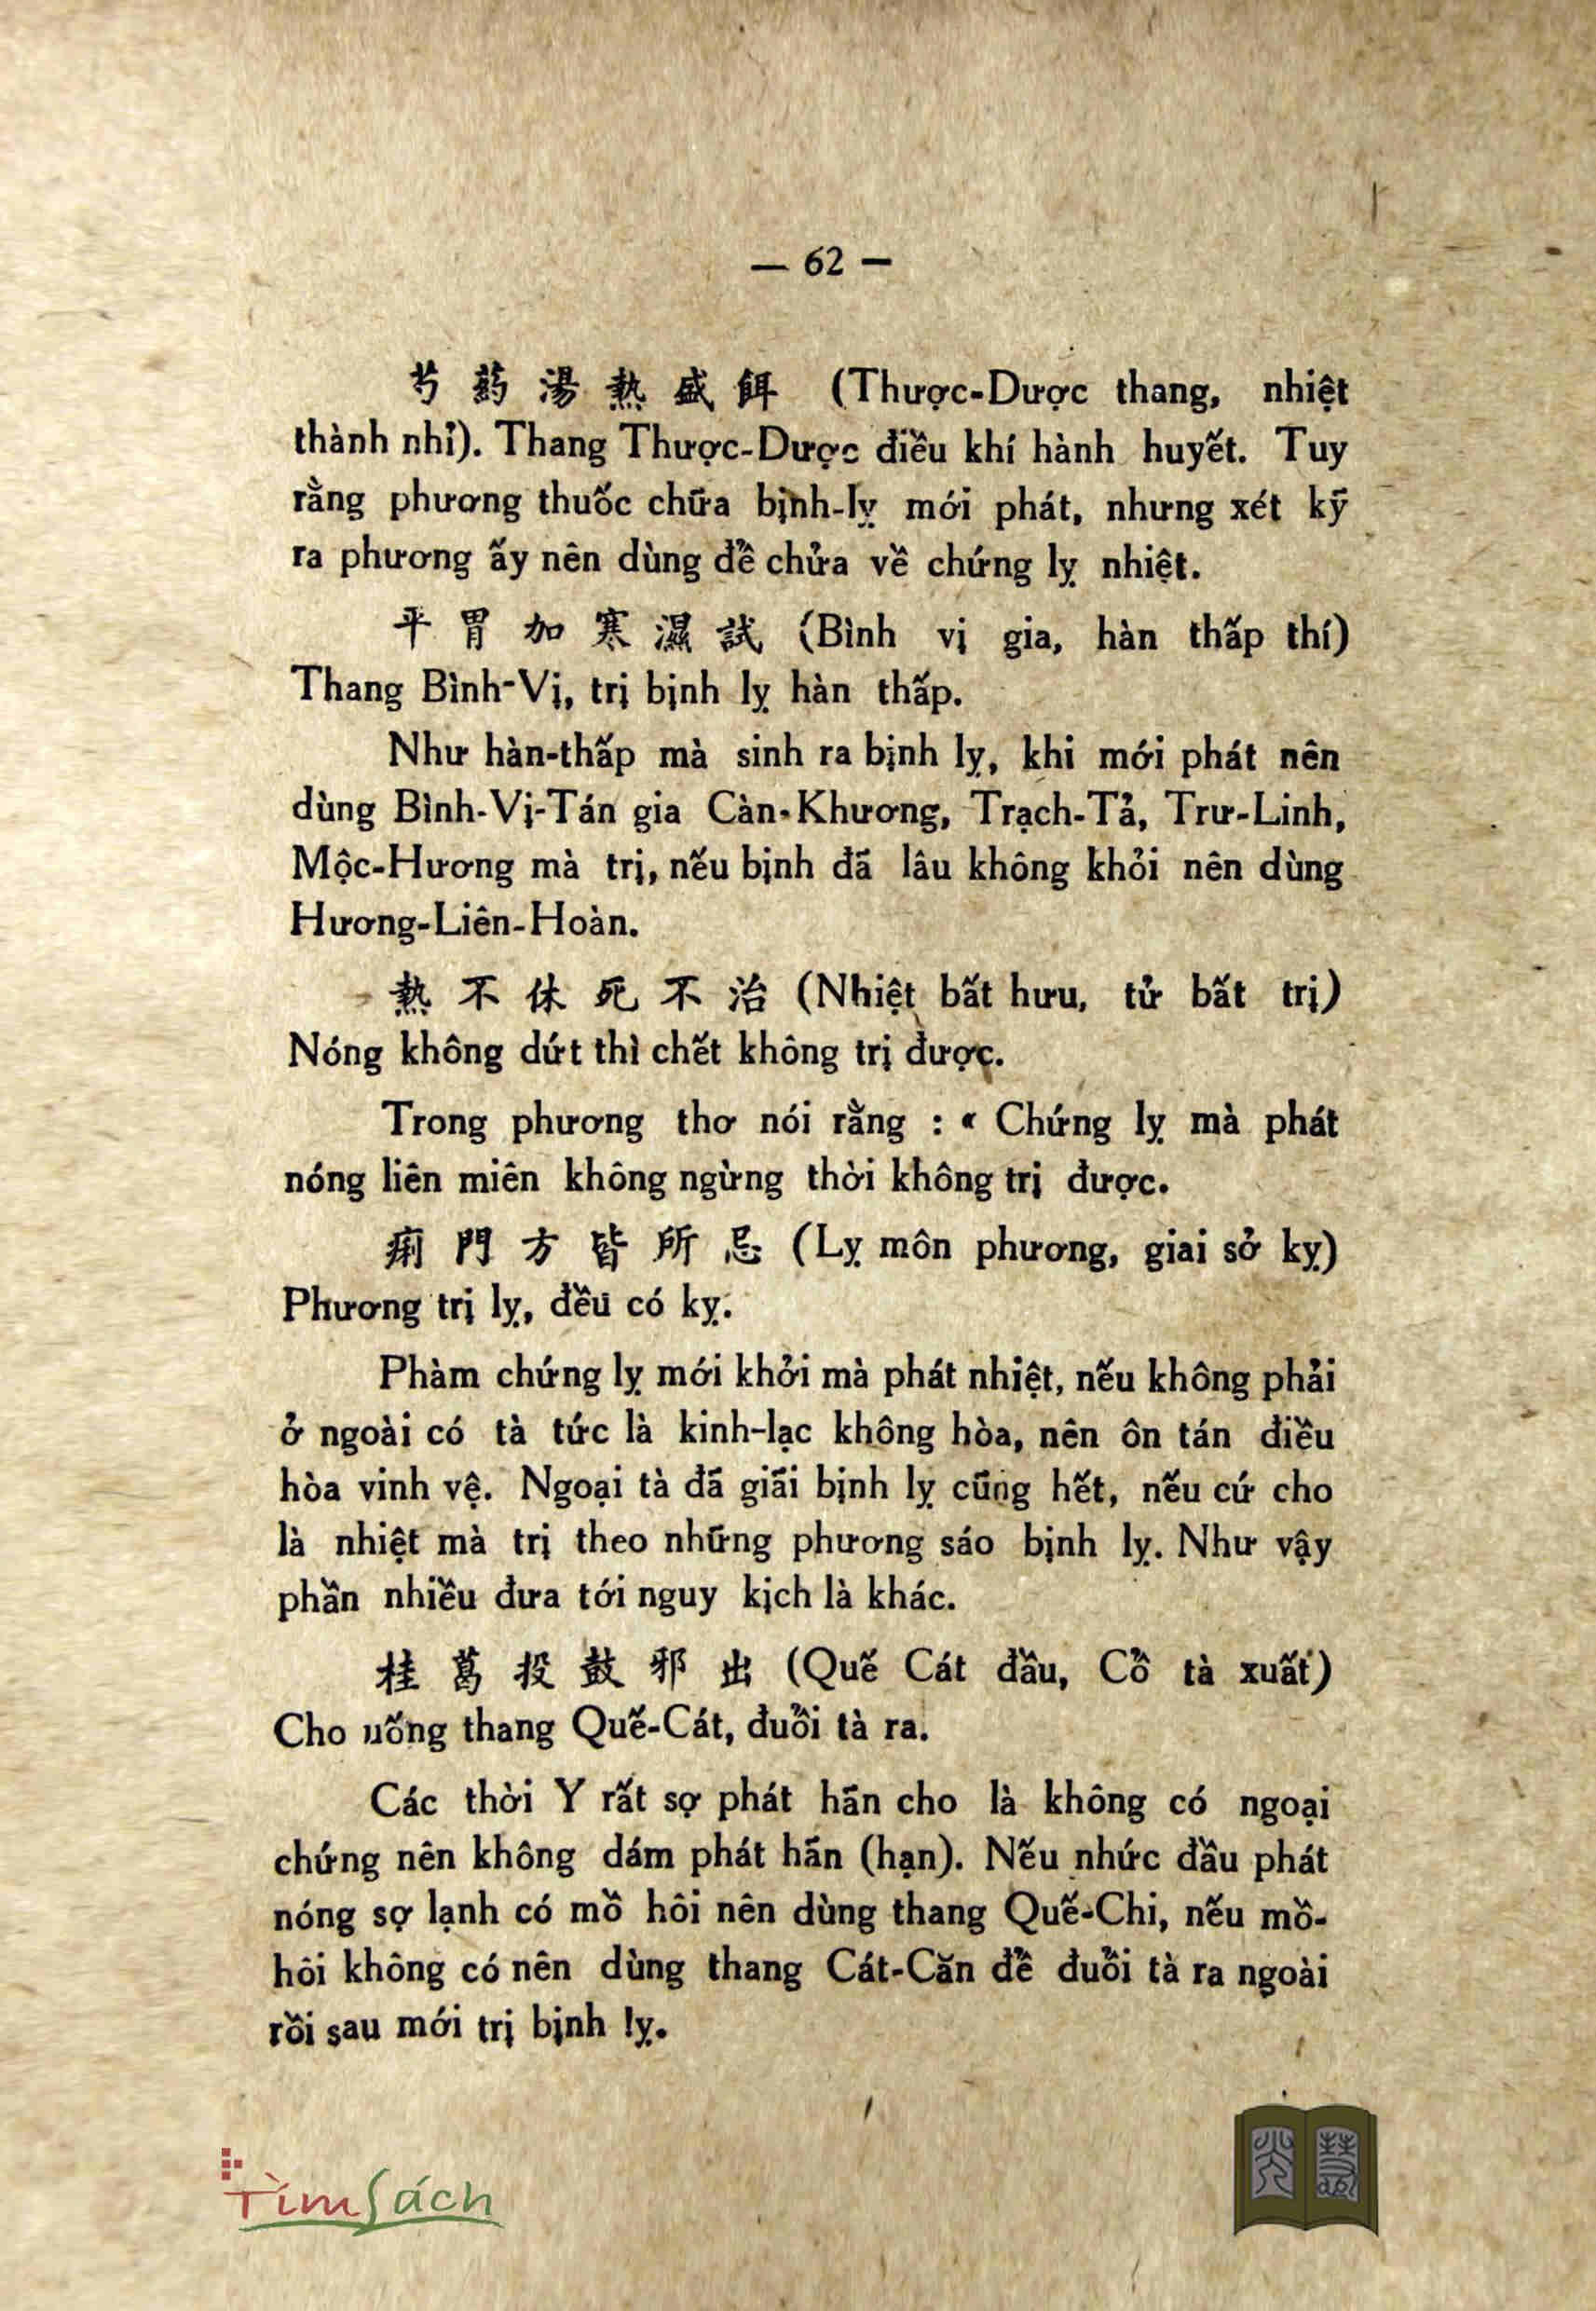 — 62 —
芍藥湯熱盛餌 (Thược-Dược thang, nhiệt
thành nhĩ). Thang Thược-Dược điều khí hành huyết. Tuy
rằng phương thuốc chữa bịnh-lỵ mới phát, nhưng xét kỹ
ra phương ấy nên dùng để chửa về chứng lỵ nhiệt.
平胃加寒濕試 (Bình vị gia, hàn thấp thí)
Thang Bình-Vị, trị bịnh lỵ hàn thấp.
Như hàn-thấp mà sinh ra bịnh lỵ, khi mới phát nên
dùng Bình-Vị-Tán gia Càn-Khương, Trạch-Tả, Trư-Linh,
Mộc-Hương mà trị, nếu bịnh đã lâu không khỏi nên dùng
Hương-Liên-Hoàn.
熱不休死不治 (Nhiệt bất hưu, tử bất trị)
Nóng không dứt thì chết không trị được.
Trong phương thơ nói rằng : « Chứng lỵ mà phát
nóng liên miên không ngừng thời không trị được.
痢門方皆所忌 (Lỵ môn phương, giai sở kỵ)
Phương trị lỵ, đều có kỵ.
Phàm chứng lỵ mới khởi mà phát nhiệt, nếu không phải
ở ngoài có tà tức là kinh-lạc không hòa, nên ôn tán điều
hòa vinh vệ. Ngoại tà đã giãi bịnh lỵ cũng hết, nếu cứ cho
là nhiệt mà trị theo những phương sáo bịnh lỵ. Như vậy
phần nhiều đưa tới nguy kịch là khác.
桂葛投鼓邪出 (Quế Cát đầu, Cổ tà xuất)
Cho uống thang Quế-Cát, đuổi tà ra.
Các thời Y rất sợ phát hãn cho là không có ngoại
chứng nên không dám phát hãn (hạn). Nếu nhức đầu phát
nóng sợ lạnh có mồ hôi nên dùng thang Quế-Chi, nếu mồ-
hôi không có nên dùng thang Cát-Căn để đuổi tà ra ngoài
rồi sau mới trị bịnh lỵ.
TìmSách